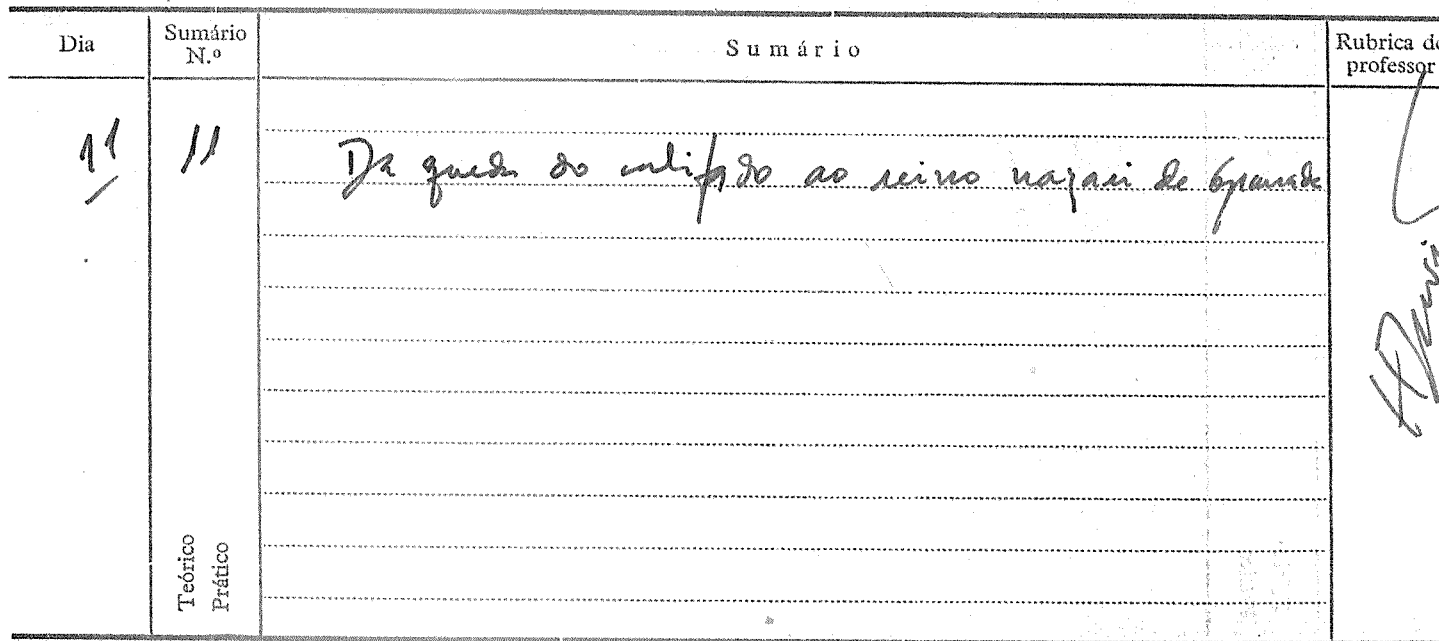 Dia
Sumário N.º
Sumário
Rubrica do professor
11
11
Da queda do califado ao reino nazari de Granada
Teórico
Prático